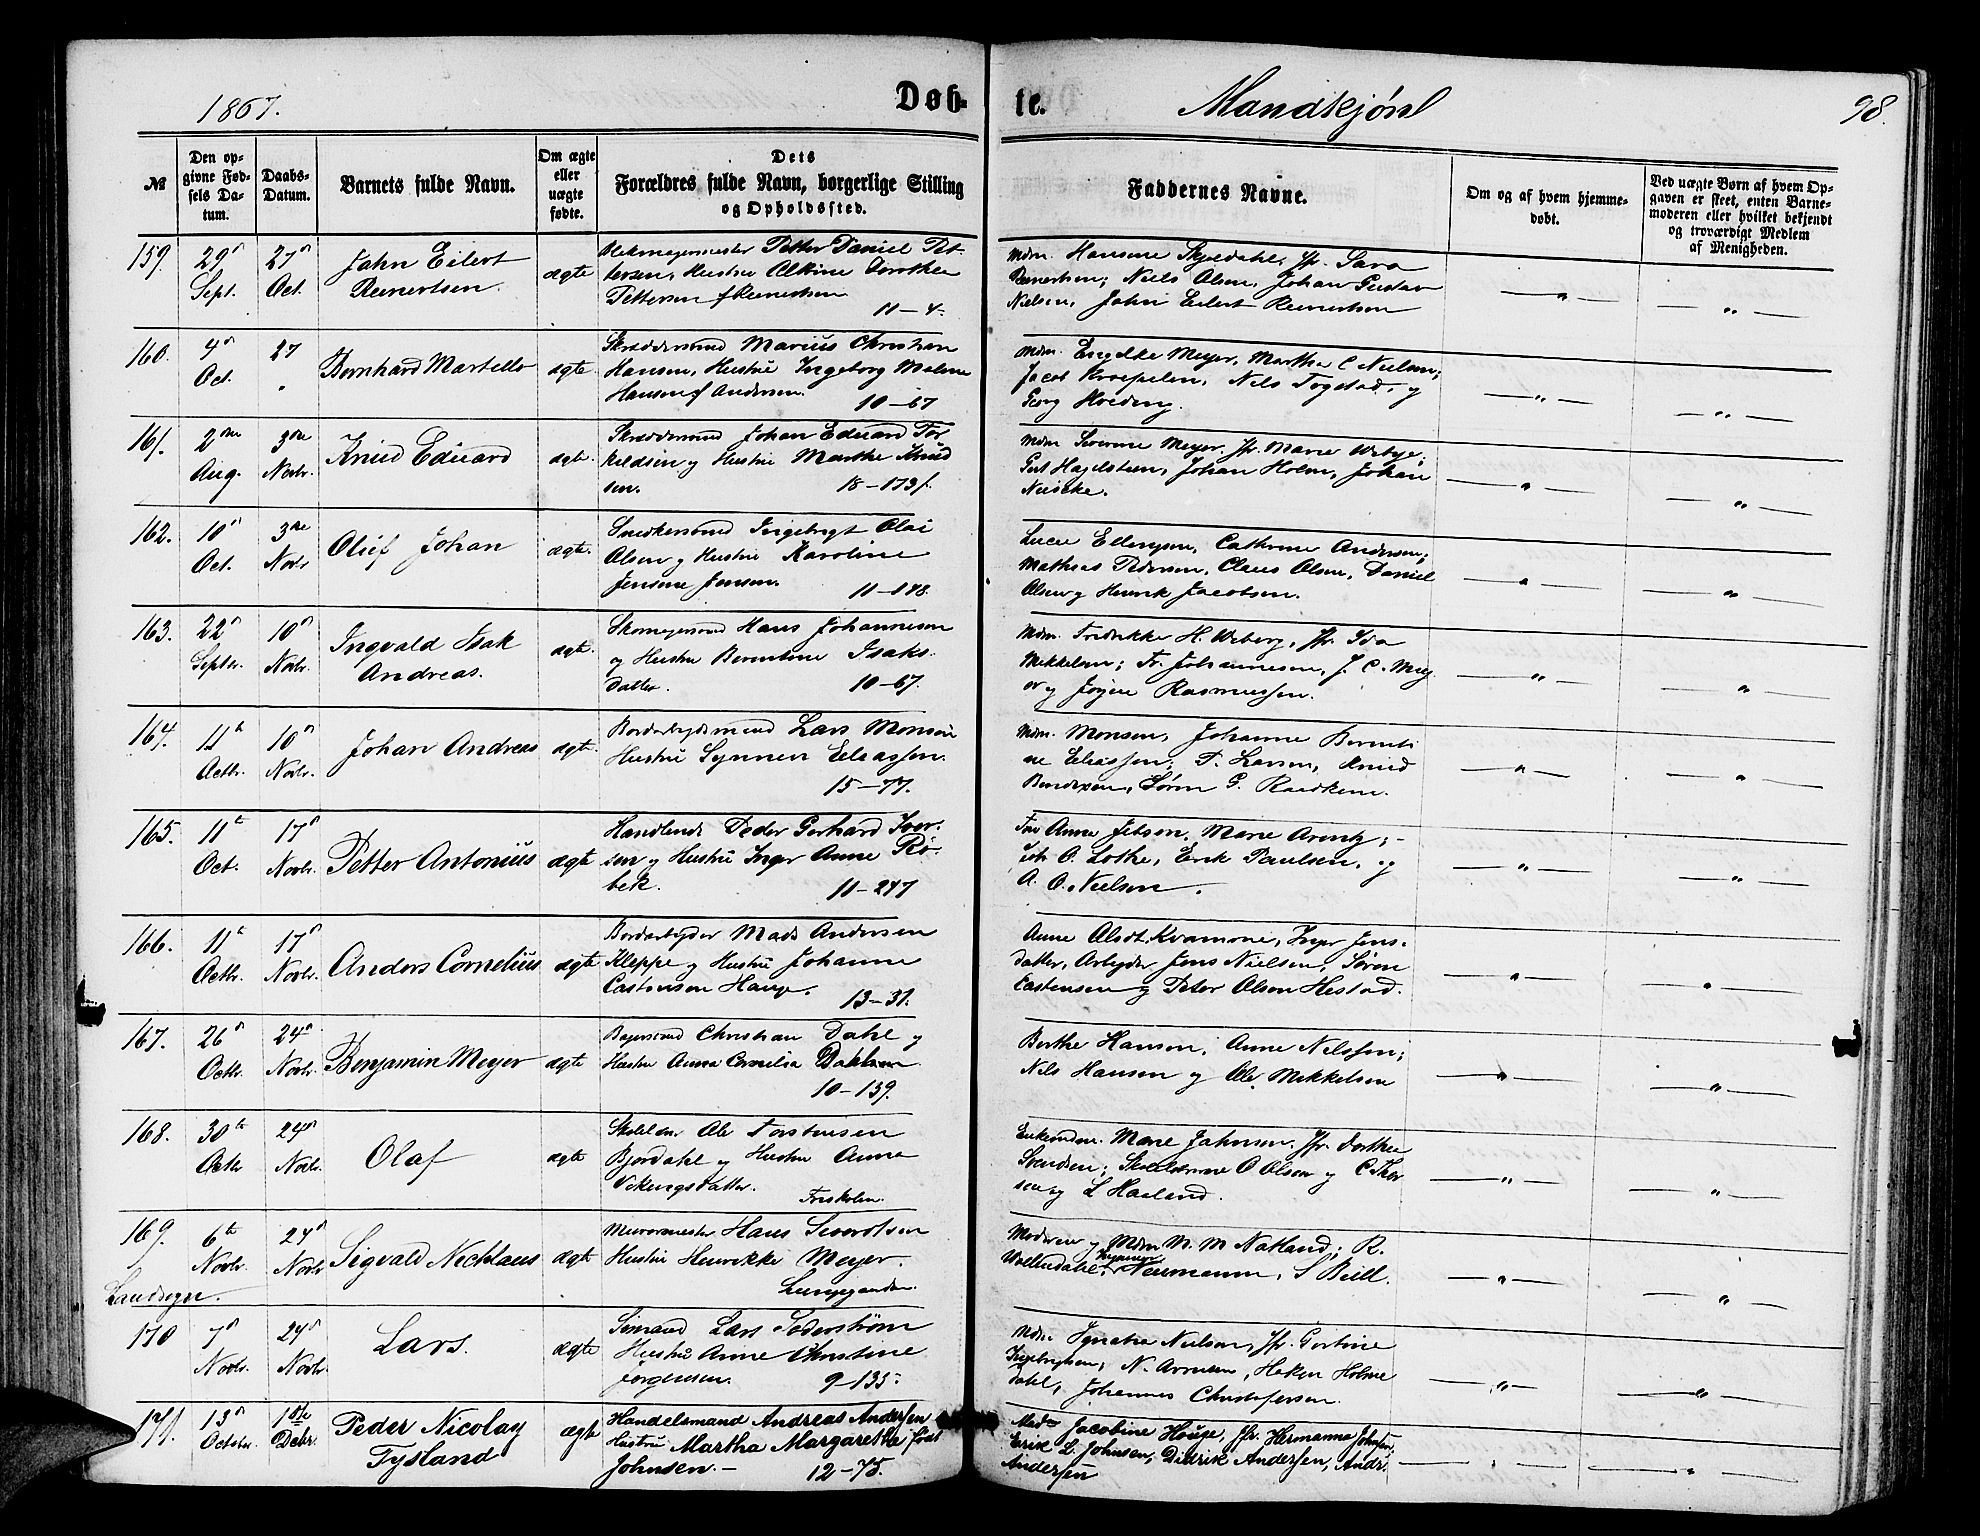 1867. Døb- te. Mandkjøn 98.
№ Den opgivne Fødsels Datum. Daabs-Datum. Barnets fulde Navn. Om ægte eller uægte fødte. Dets Forældres fulde Navn, borgerlige Stilling og Opholdssted. Faddernes Navne. Om og af hvem hjemmedøbt. Ved uægte Børn af hvem Opgaven er skeet, enten Barnemoderen eller hvilket bekjendt og troværdigt Medlem af Menigheden.
159. 29 Sept. 27 Oct. Jahn Eilert Reinertsen. ægte
Petter Daniel Pettersen, Hustru Alkine Dorothea
Pettersen f Reinertsen
11-4
Mdm. Hansine Skjeldahl, Jfr. Sara
Reinertsen; Niels Olsen, Johan Gustav
Nielsen, Jahn Eilert Reinertsen
160. 4 Oct. 27 Bernhard Martello ægte
Skræddersvend Marius Christian
Hansen, Hustru Ingeborg Malene
Hansen f Andersen.
10-67
Mdm. Engelke Meyer, Martha C Nielsen;
Jacob Kroepelin, Nils Togstad, og
Georg Hveding.
161. 2den Aug. 3die Novbr. Knud Eduard ægte.
Skræddersvend Johan Eduard Torkildsen og Hustru Marthe Knudsen.
18-173f.
Mdm Severine Meyer, Jfr. Marie
Gert Hagelsteen, Johan Holm, Johan
162. 10 Oct. 3die Novbr Oluf Johan ægte.
Snedkersvend Ingebrigt Olai
Olsen og Hustru Karoline
Jensine Jensen.
11-148.
Lucie Ellingsen, Cathrine Andersen;
Mathias Pedersen, Claus Olsen, Daniel
Olsen og Henrik Jacobsen.
163. 22 Septbr. 10 Novbr. Ingvald Isak Andreas. ægte.
Skomagersvend Hans Johannesen
og Hustru Berentine Isaksdatter.
10-67.
Mdm. Fredrikke H. Weberg, Jfr. Ida
Mikkelsen; Fr. Johannesen, J. C. Meyer og Jørgen Rasmussen.
164. 11 Octbr. 10 Novbr. Johan Andreas ægte.
Lars Monsen
Hustru Synneve Eliassen.
15-77.
Mdm. Monsen, Johanne Berentine Eliassen; P. Larsen, Knud
Bendixen, Søren G.
165. 11te Oct. 17 Novbr. Petter Antonius ægte
Handlende Peder Gerhard Iversen og Hustru Inger Anne Robek.
11-247
Fru Anne Jebsen, Marie Arentz;
Joh. O. Lothe, Erik Paulsen, og
A. O. Nielsen.
166. 11te Octbr. 17 Novbr. Anders Cornelius ægte
Bordarbyder Mads Andersen
Kleppe og Hustru Johanne
Castensen Hauge.
13-31.
Anne Alsdt. Kvamme, Inger Jensdatter, Arbyder Jens Nielsen, Søren
Castensen og Peter Olsen Hestad.
167. 26 Octbr. 24 Novbr. Benjamin Meyer ægte
Bagersvend Christian Dahl og
Hustru Anna Cornelia
10-139.
Berthe Hansen, Anne Nilssen;
Nils Hansen og Ole Mikkelsen
168. 30te Octbr 24 Novbr. Olaf ægte
Ole Torstensen
Bjordahl og Hustru Anna
Vikingsdatter.
Friskolen.
Enkemdm. Marie Jahnsen, Jfr. Dorthea
Svendsen; Skoelærerne O Olsen og C Thorsen og L Haaland.
169. 6te Novbr. 24 Novbr Sigvald Nicklaus ægte
Landsogn.
Murermester Hans Sivertsen
Hustru Henrikke Meyer.
Lungegaarden.
Moderen og Mdm M. M Natland; R.
Wollendahl, Neumann, S Beill.
170 7 Novbr. 24 Novbr. Lars. ægte
Sømand Lars Søderstrøm
Hustru Anne Christine
Jørgensen.
9-135
Mdm Ignatia Nielsen, Jfr. Gortine
Ingebrigtsen; N. Arnesen, Haken Holmedahl, Johannes Christofersen.
171. 13 Octobr. 1ste Debr. Peder Nicolay Tysland ægte
Handelsmand Andreas Andersen
Hustru Martha Margaretha født
Johnsen. —
12-75.
Mad. Jacobine Houge, Jfr. Hermanna Johnsen,
Erik L. Johnsen, Didrik Andersen, Andr.
Andersen